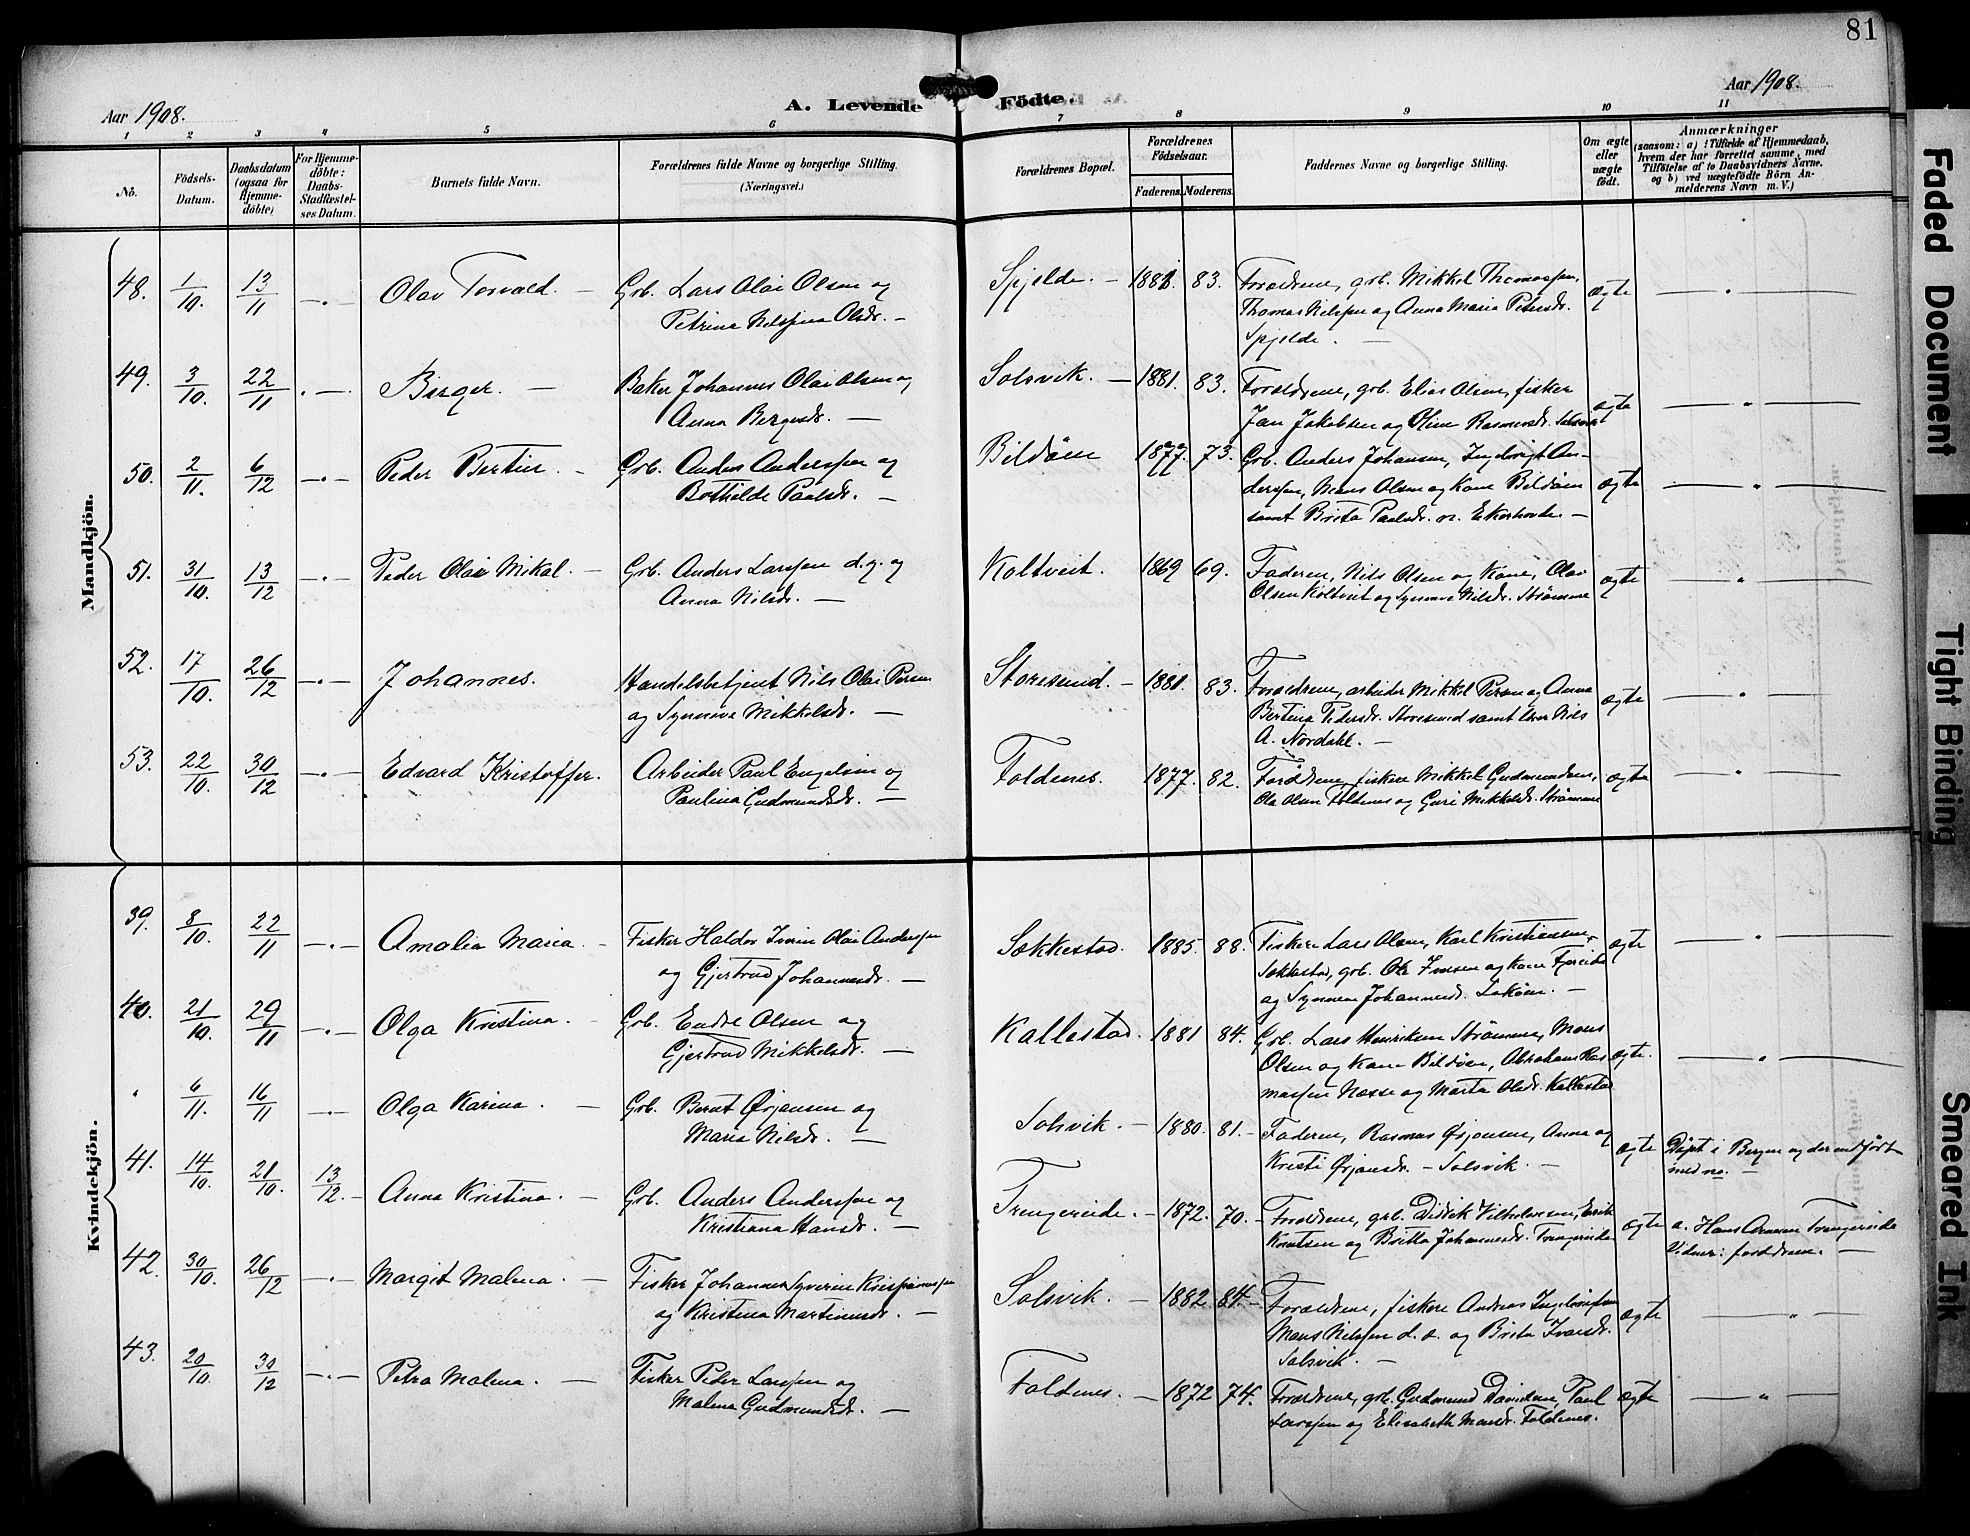 81
Aar 1908.
A. Levende Födte.
Aar 1908.
1 2 3 4 5 6 7 8 9 10 11
No.
Födsels-
Datum.
Daabsdatum
(ogsaa for
Hjemme-
döbte)
For Hjemme-
döbte:
Daabs-
Stadfæstel-
ses Datum.
Barnets fulde Navn.
Forældrenes fulde Navne og borgerlige Stilling.
(Næringsvei.)
Forældrenes Bopæl.
Forældrenes
Födselsaar.
Faderens. Moderens.
Faddernes Navne og borgerlige Stilling.
Om ægte
eller
uægte
födt.
Anmærkninger
(saasom: a) i Tilfælde af Hjemmedaab,
hvem der har forrettet samme, med
Tilföielse af to Daabsvidners Navne,
og b) ved uægtefödte Börn An-
melderens Navn m. V.)
Mandkjön.
48. 1/10. 13/11 Olav Torvald. Grb. Lars Olai Olsen og
Petrina Nilsine Olsdr.
Spjelde. 1881. 83. Forældrene, grb. Mikkel Thomassen,
Thomas Nilssen og Anna Maria Petersdr.
Spjelde.
ægte
49. 3/10. 22/11 Birger. Baker Johannes Olai Olsen og
Anna Bergesdr.
Solsvik. 1881. 83. Forældrene, grb. Elias Olsen, fisker
Jan Jakobsen og Oline Rasmusdr. Solsvik
ægte
50. 2/11. 6/12 Peder Bertin. Grb. Anders Anderssen og
Bothilde Paalsdr.
Bildöen 1877. 73. Grb. Anders Johansen, Ingebrigt An-
derssen, Mons Olsen og Kone Bildöen
samt Brita Paalsdr. n. Ekerhovde.
ægte
51. 31/10. 13/12 Peder Olai Mikal. Grb. Anders Larssen d.y. og
Anna Nilsdr.
Koltveit. 1869 69. Faderen, Nils Olsen og Kone, Olav
Olsen Koltveit og Synneve Nilsdr. Strömme
ægte
52. 17/10. 26/12 Johannes. Handelsbetjent Nils Olai Persen
og Synneva Mikkelsdr.
Storesund. 1881. 83. Forældrene, arbeider Mikkel Persen og Anna
Bertina Pedersdr. Storesund samt Nils
A. Nordahl.
ægte
53. 22/10. 30/12 Edvard Kristoffer. Arbeider Paul Engelsen og
Paulina Gudmundsdr.
Foldenes. 1877. 82. Forældrene, fiskere Mikkel Gudmundsen,
Ole Olsen Foldenes og Guri Mikkelsdr. Strömme
ægte
Kvindekjön.
39. 8/10. 22/11 Amalia Maria. Fisker Haldor Iverin Olai Anderssen
og Gjertrud Johannesdr.
Sekkestad. 1885. 88. Fiskere Lars Olsen, Karl Kristiansen
Sekkestad, grb. Ole Jensen og kone Fjereide
og Synneva Johannesdr.
ægte
40. 21/10. 29/11 Olga Kristina. Grb. Endre Olsen og
Gjertrud Mikkelsdr.
Kallestad. 1881 84. Grb. Lars Henriksen Strömme, Mons
Olsen og Kone Bildöen, Abraham Ras
mussen Nesse og Marta Olsdr. Kallestad
ægte.
" 6/11. 16/11 Olga Karina. Grb. Bernt Örjansen og
Maria Nilsdr.
Solsvik. 1880. 81. Faderen, Rasmus Örjansen, Anna og
Kristi Örjansdr. Solsvik.
ægte Döpt i Bergen og der indfört
med no.
41. 14/10. 21/10. 13/12. Anna Kristina. Grb. Anders Anderssen og
Kristiana Hansdr.
Trengereide. 1872. 70. Forældrene, grb. Didrik Vilhelmsen, Erik
Knutsen og Britta Johannesdr. Trengereide
ægte a. Hans Arnesen Trengereide
Vidner: forældrene.
42. 30/10. 26/12 Margit Malena. Fisker Johannes Syverin Krispinussen
og Kristina Martinusdr.
Solsvik. 1882. 84. Forældrene, fiskere Andreas Ingebrigtsen
Mons Nilssen d. e. og Brita Iversdr.
Solsvik.
ægte
43. 20/10. 30/12 Petra Malena. Fisker Peder Larssen og
Malena Gudmundsdr.
Foldenes. 1872 74. Forældrene, grb. Gudmund Davidsen, Paul
Larssen og Elisabeth Monsdr. Foldenes.
ægte
Faded Document
Tight Binding
Smeared Ink